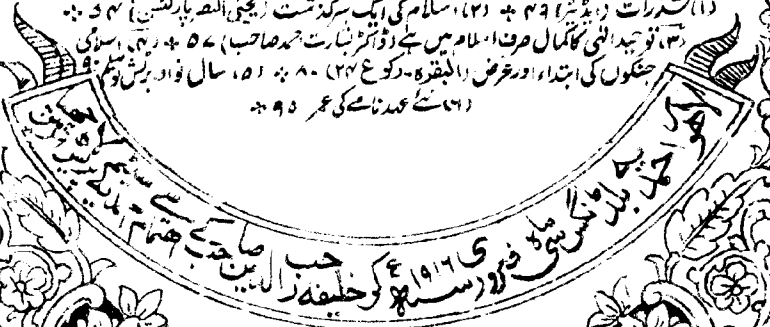 (۱) شذرات (ایڈیٹر) ۴۹ * (۲) اسلام کی ایک سرگذشت (یحییٰ النصر پارکنسن) ۵۴ *
(۳) توحید الٰہی کا کمال صرف اسلام میں ہے (ڈاکٹر بشارت احمد صاحب) ۵۷ * (۴) اسلامی
جنگوں کی ابتداء اور غرض (البقرہ۔ رکوع ۲۴) ۸۰ * (۵) سال نو اور برٹش مسلم ۹۰
(۶) نئے عہد نامے کی عمر ۹۵ *
لاہور احمدیہ بلڈنگس سی ماہ فروری سنہ ۱۹۱۶ء کو خلیفہ رجب الدین صاحب کے اہتمام سے